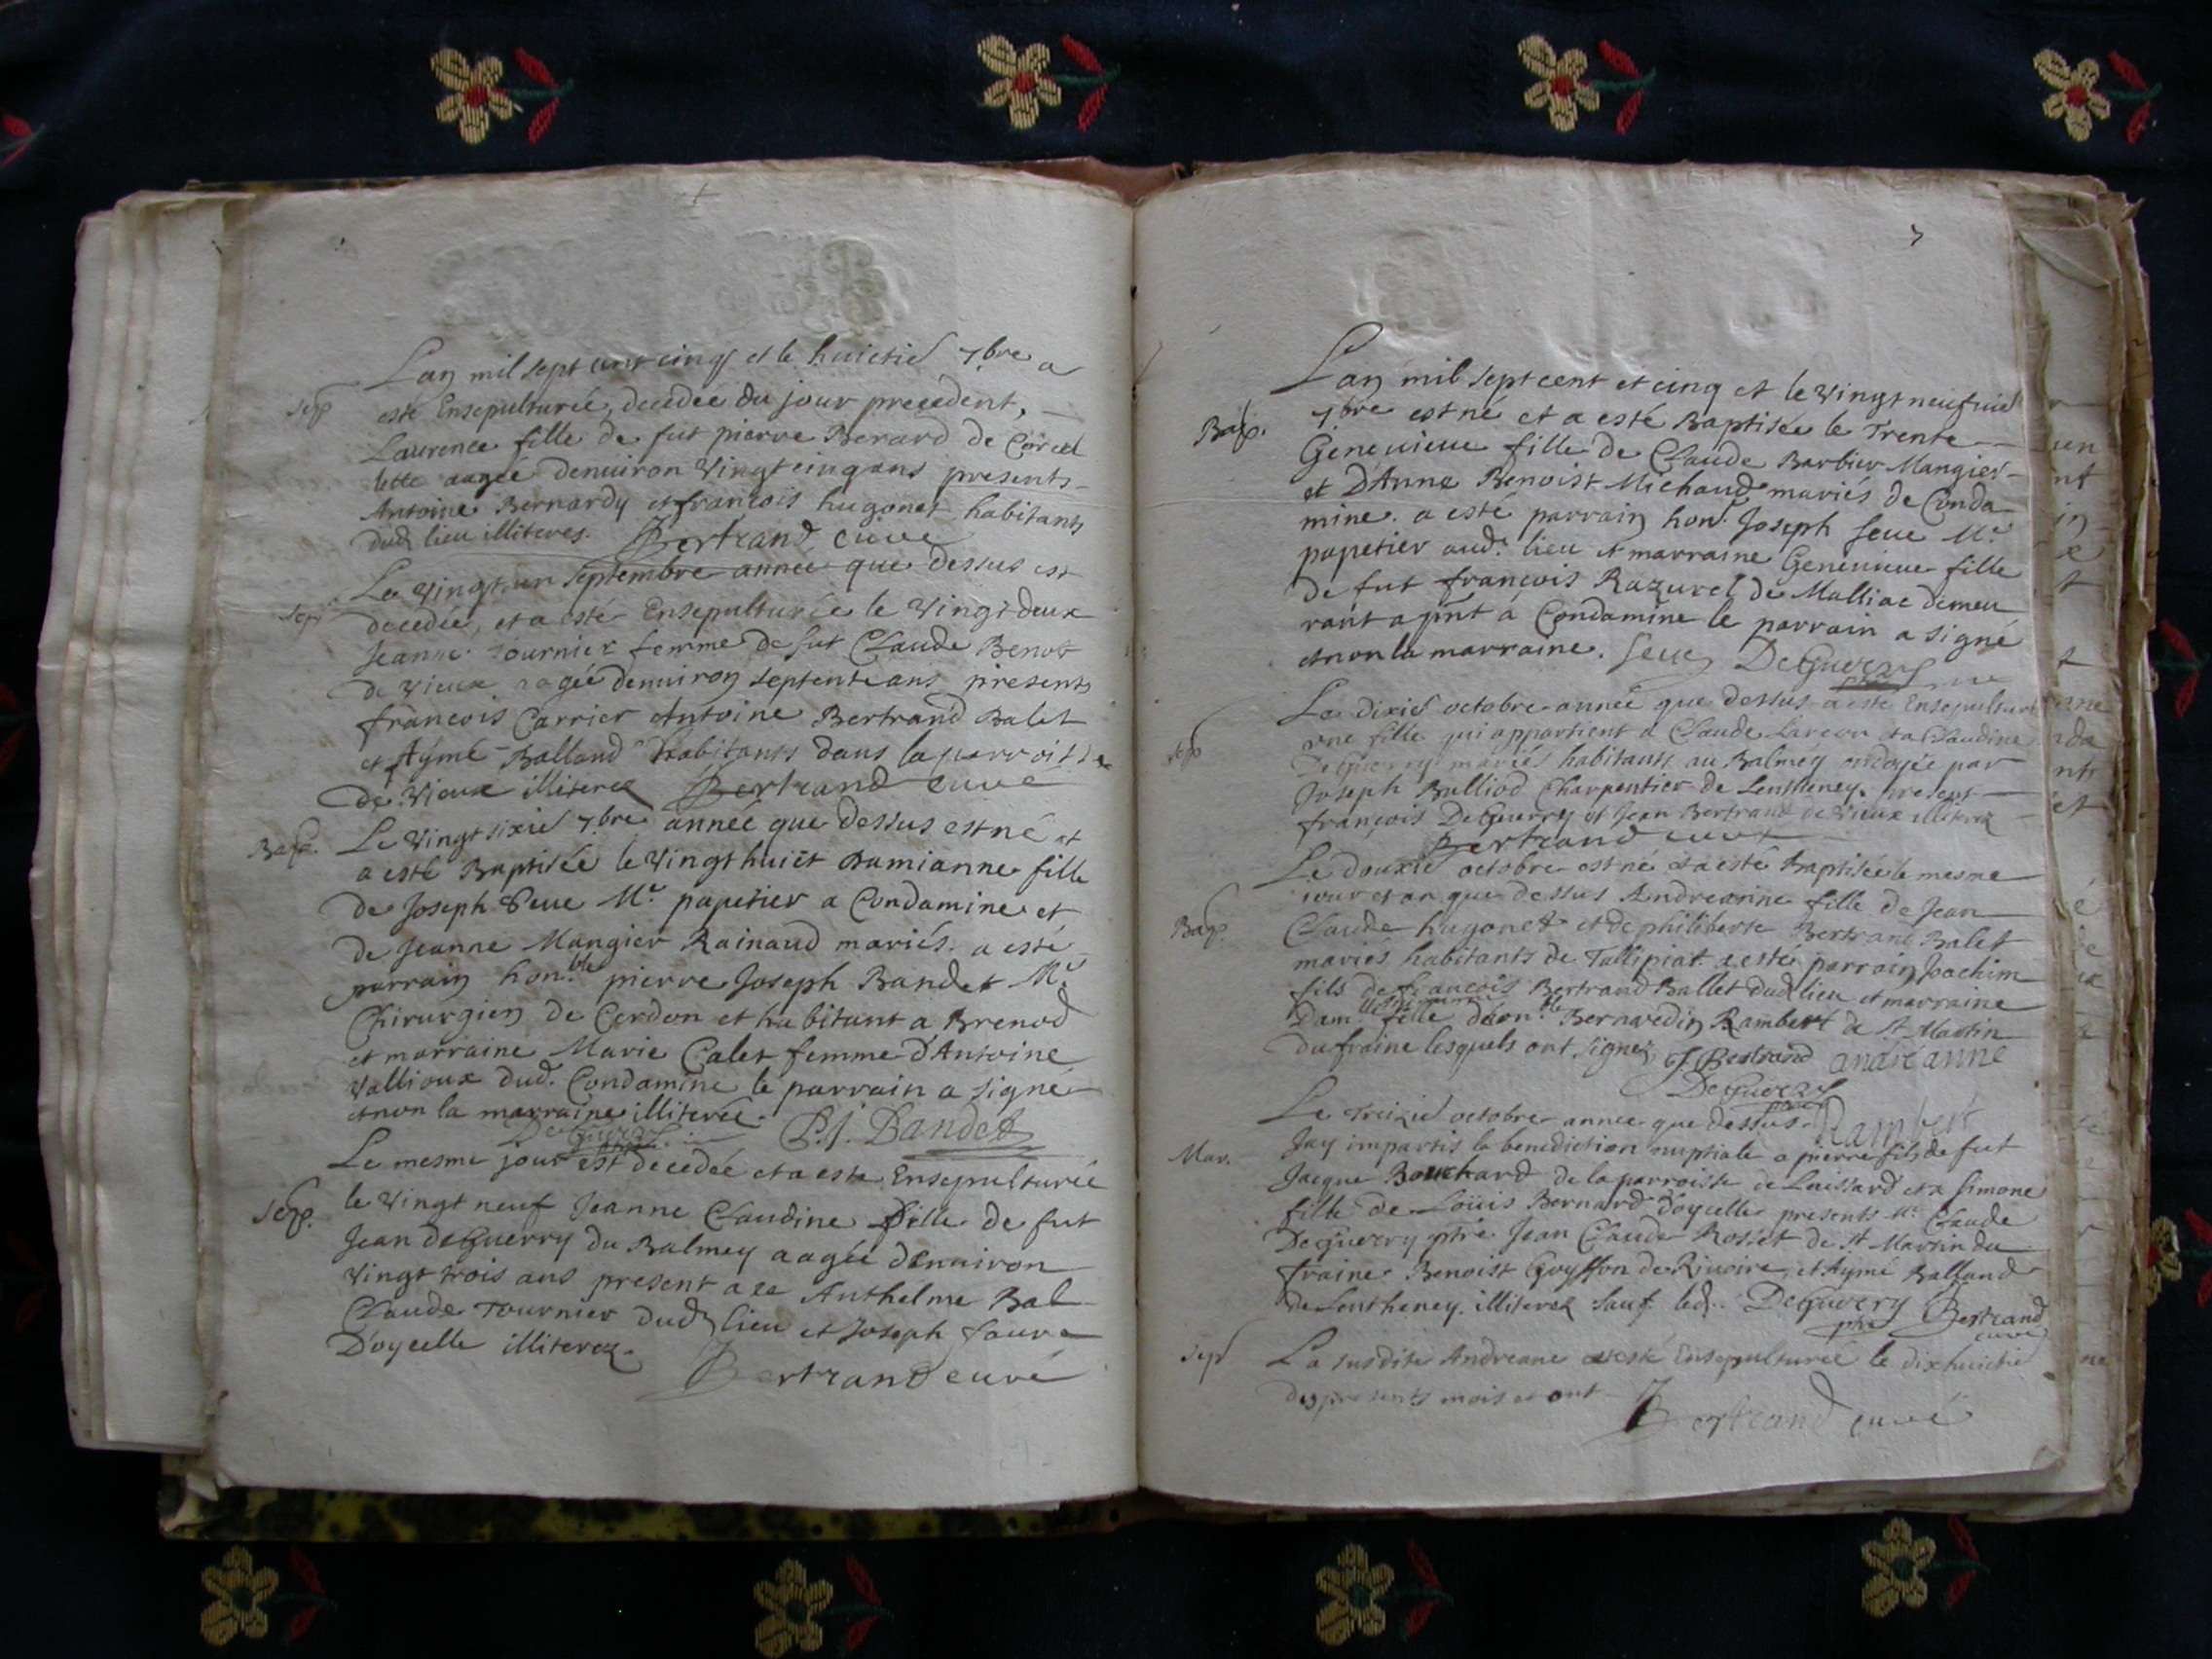 Lan mil sept cent cinq et le huictie 7bre a
Sep
esté Ensepulturée, decedée du jour precedent,
Laurence fille de fut pierre Berard de Corcel
lette aagée denuiron vingt cinq ans presents
Antoine Bernardy et françois hugonet habitants
dud lieu illiteres. Bertrand curé
Le vingt un septembre année que dessus est
Sep
decedée, et a esté Ensepulturée le vingt deux
Jeanne Tournier femme de fut Claude Benoit
de vieux aagée denuiron septente ans presents
françois Carrier Antoine Bertrand Balet
et Aymé Balland habitants dans la parroisse
de vieux illiterez Bertrand curé
Bap. Le vingt sixie 7bre année que dessus est né et
a esté Baptisée le vingt huict Damianne fille
de Joseph Seue Mr papetier a Condamine et
de Jeanne Mangier Rainaud mariés. a esté
parrain hon.ble pierre Joseph Bandet Mr
Chirurgien de Cerdon et habitant a Brenod
et marraine Marie Calet femme d'Antoine
Vallioux dud. Condamine le parrain a signé
et non la marraine illiterée. P.J. Bandet
DeGuerry
Le mesme jour est decedée et a esté Ensepulturée
Sep. le vingt neuf Jeanne Claudine fille de fut
Jean deGuerry du Balmey aagée denuiron
vingt trois ans present a ce Anthelme Bal
Claude Tournier dud lieu et Joseph faure
D'oycelle illiterez
Bertrand curé
7
Lan mil sept cent et cinq et le vingt neufuie
Bap. 7bre est né et a esté Baptisée le Trente
Geneuieue fille de Claude Barbier Mangier
et D'Anne Benoist Michaud mariés de Conda
mine. a esté parrain hon. Joseph Seue Mr
papetier aud. lieu et marraine Geneuieue fille
de fut françois Razurel de Malliac demeu
rant a pnt à Condamine le parrain a signé
et non la marraine. Seue DeGuerry
Le dixie octobre année que dessus a esté Ensepulturé
Sep
vne fille qui appartient a Claude et a Claudine
DeGuerry mariés habitants au Balmey ondoyée par
Joseph Bulliod Charpentier de Lentheney. present
françois DeGuerry et Jean Bertrand de Vieux illiterez
Bertrand curé
Le douxie octobre est né et a esté Baptisée le mesme
jour et an que dessus Andreanne fille de Jean
Bap. Claude hugonet et de philiberte Bertrand Balet
mariés habitants de Tallipiat a esté parrain Joachim
fils de françois Bertrand Ballet dud lieu et marraine
Damlle fille d'hon.ble Bernardin Rambert de St Martin
du fraine lesquels ont signez J Bertrand andreanne
DeGuerry
Rambert
Le Treizie octobre année que dessus
Mar. Jay impartis la benediction nuptiale a pierre fils de fut
Jacque Bouchard de la parroisse de Leissard et a Simone
fille de Loüis Bernard D'oycelle presents Mr Claude
DeGuerry ptre Jean Claude Rosset de St Martin du
fraine Benoist Goyffon de Riuoire, et Aymé Balland
de Lentheney. illiterez sauf led. DeGuerry Bertrand
ptre curé
Sep La susdite Andreane a esté Ensepulturée le dixhuictie
des presents mois et ont
Bertrand curé